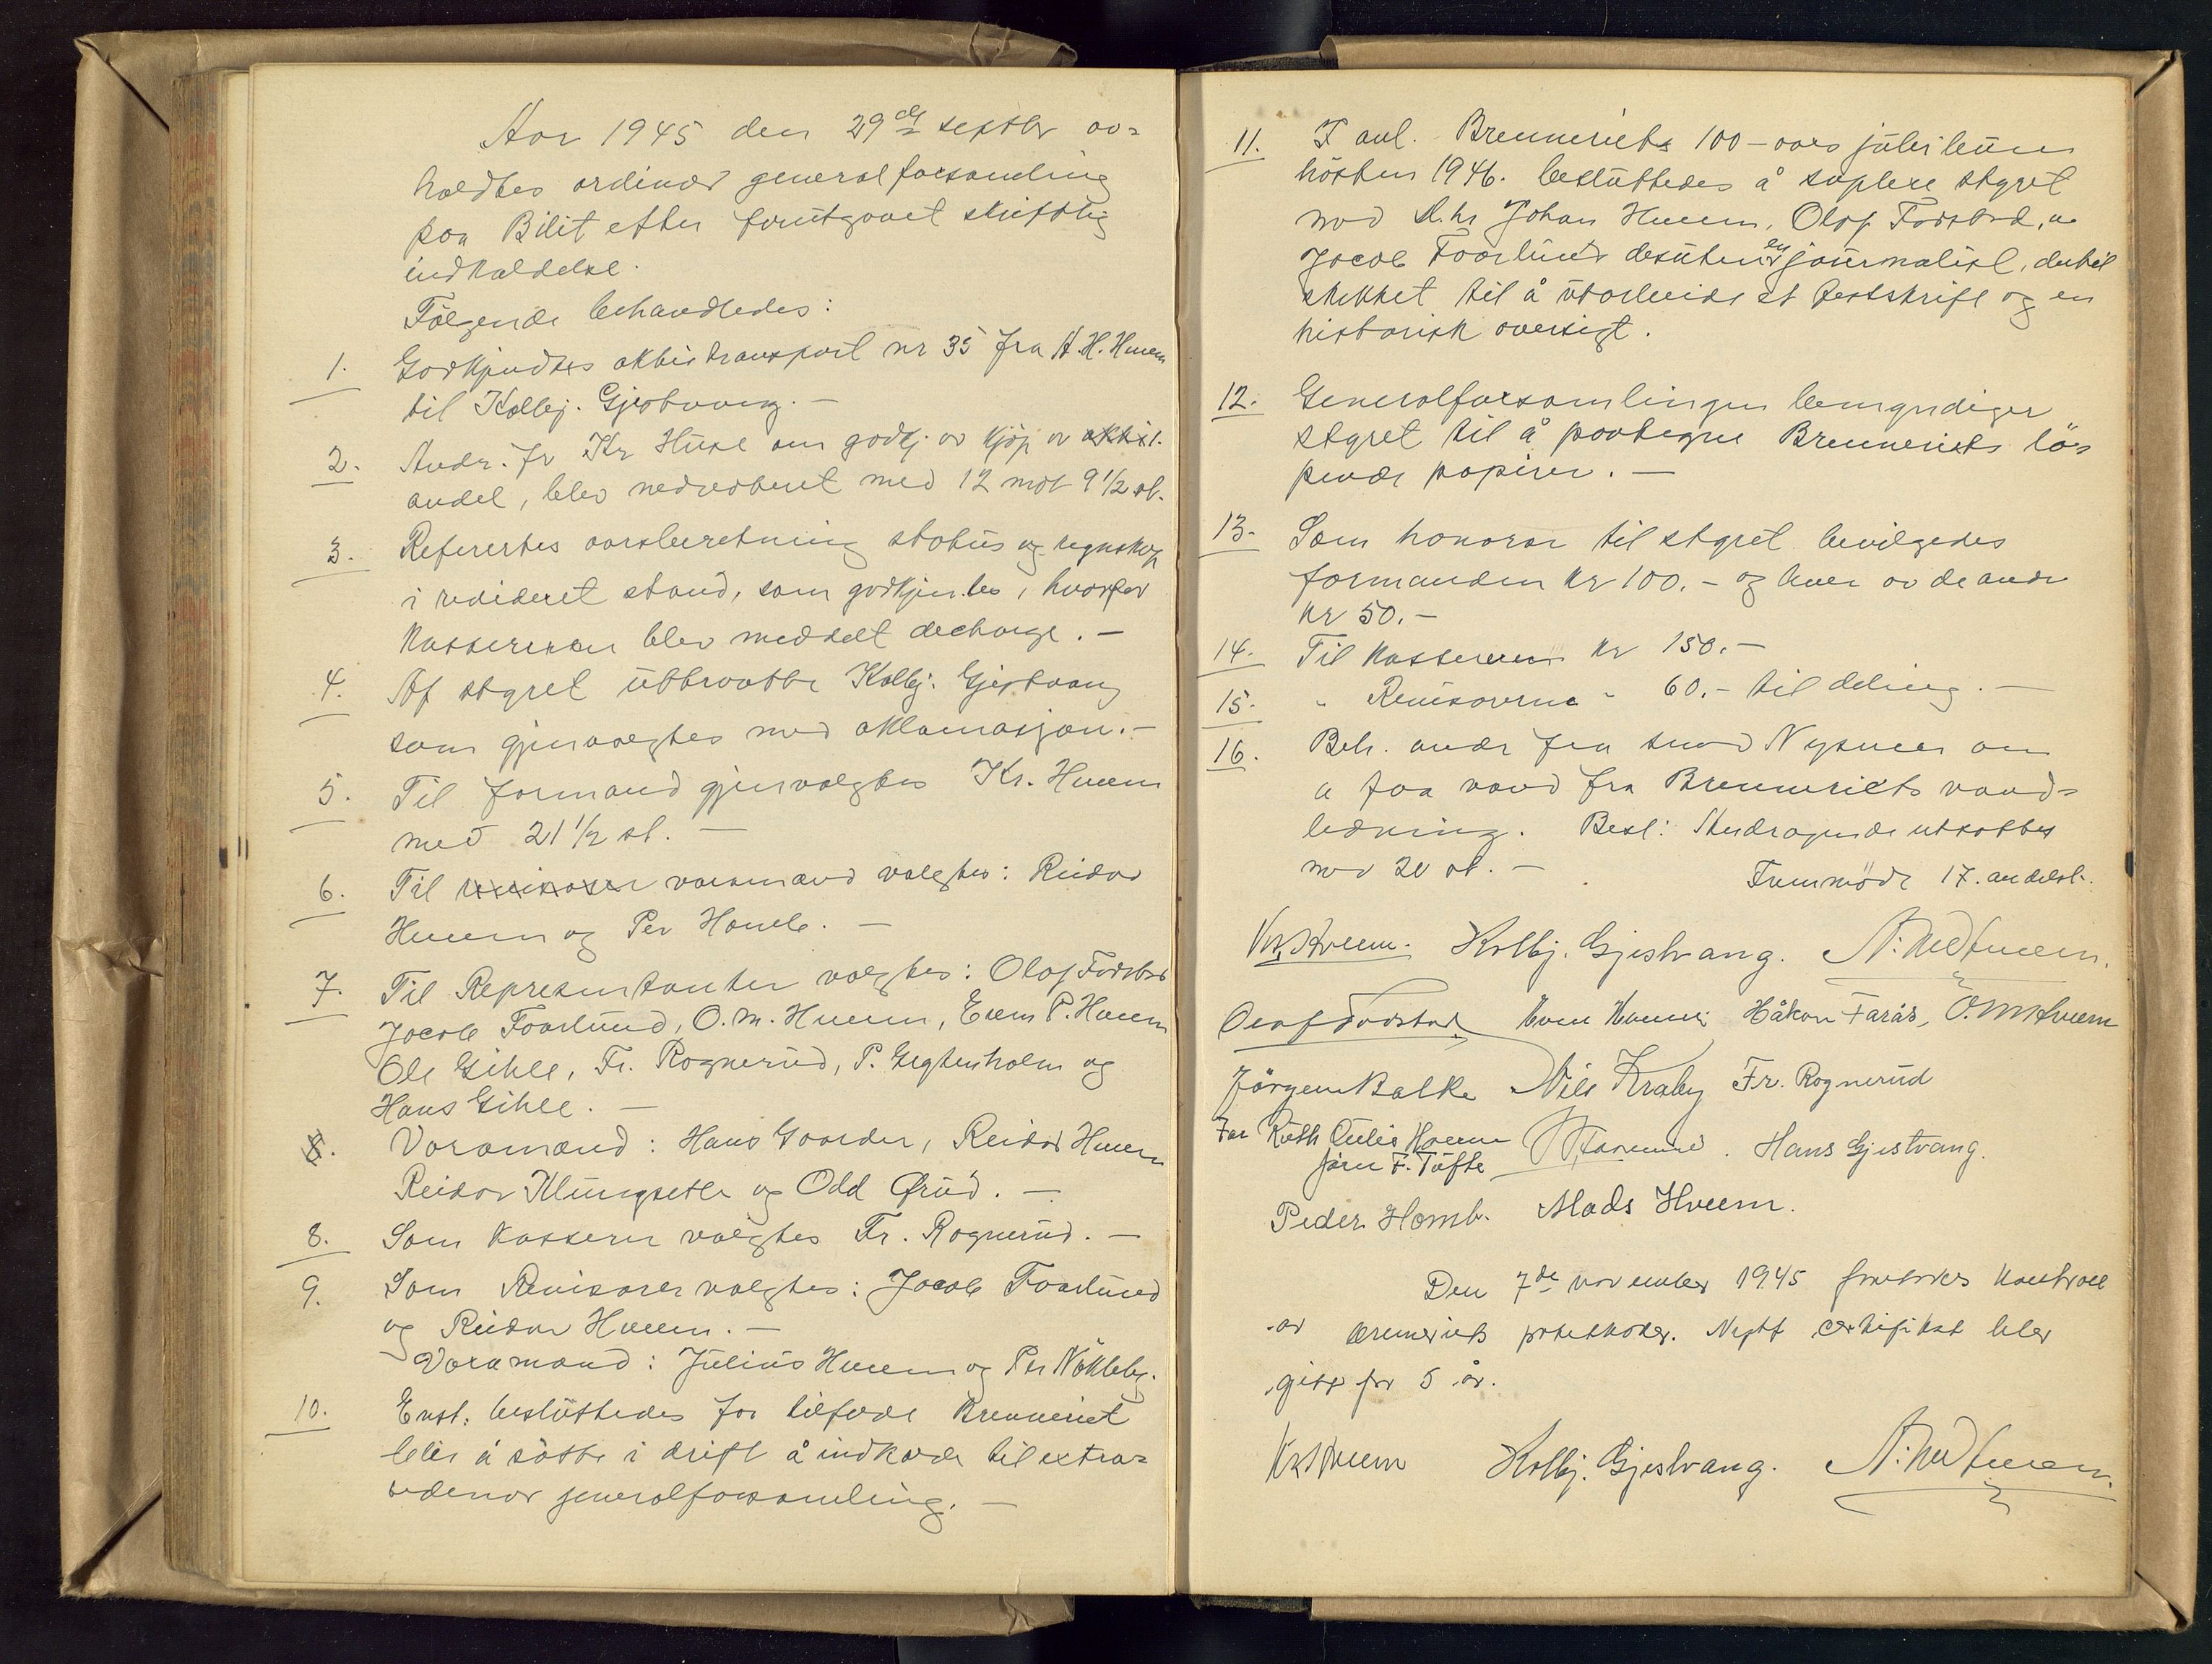 Aar 1945 den 29de septbr av-
holdtes ordinær generalforsamling
paa Bilit efter forutgaaet skriftlig
indkaldelse.
Følgende behandledes:
1. Godkjendtes aktietransport nr 35 fra A. H. Hveem
til Kolbj. Gjestvang. —
2. Andr. fr Kr Huse om godkj. av kjøp av aktie.
andel, blev nedvoteret med 12 mot 9 1/2 st.
3. Referertes aarsberetning status og regnskap
i revideret stand, som godkjentes, hvorfor
kassereren blev meddelt decharge. —
4. Af styret uttraatte Kolbj. Gjestvang
som gjenvalgtes med aklamasjon. —
5. Til formand gjenvalgtes Kr. Hveem
med 21 1/2 st. —
6. Til revisorer varamænd valgtes: Reidar
Hveem og Per Homb. —
7. Til Representanter valgtes: Olaf Fodstad
Jacob Faarlund, O. M. Hveem, Even P. Hveem
Ole Gihle, Fr. Rognerud, P. Seglenholm og
Hans Gihle. —
8. Varamænd: Hans Gaarder, Reidar Hveem
Reidar Klungseth og Odd Ørud. —
8. Som kasserer valgtes Fr. Rognerud. —
9. Som Revisorer valgtes: Jacob Faarlund
og Reidar Hveem. —
Varamænd: Julius Hveem og Per Nökleby.
10. Enst. besluttedes for tilfælde Brenneriet
blir å sætte i drift å indkalde til extra-
ordenær generalforsamling. —
11. I anl. Brenneriets 100-aars jubileum
hösten 1946. besluttedes å suplere styret
med d.hr Johan Hveem, Olaf Fodstad, o
Jacob Faarlund desuten en journalist, dertil
skikket til å utarbeide et festskrift og en
historisk oversigt.
12. Generalforsamlingen bemyndiger
styret til å paategne Brenneriets lö-
pende papirer. —
13. Som honorar til styret bevilgedes
formanden kr 100.- og hver av de andre
kr 50.-
14. Til kassereren kr 150.-
15. " Revisorerne " 60.- til deling. —
16. Beh. andr fra Nysveen om
a faa vand fra Brenneriets vand-
ledning. Besl: Andragende utsattes
mod 20 st. —
Fremmöde 17. andelsh.
Kr. Hveem. Kolbj. Gjestvang. A. Nedhveem.
Olaf Fodstad. Håkon Farås, O. M Hveem
Jörgen Balke Nils Kraby Fr. Rognerud
For Ruth Julie Hveem
Jörn F. Tofte Hans Gjestvang.
Peder Homb. Mads Hveem.
Den 7de november 1945 foretokes kontroll
av breneriets potetkoker. Nytt certifikat blev
gitt for 5 år.
Kr Hveem Kolbj. Gjestvang. A. Nedhveem.